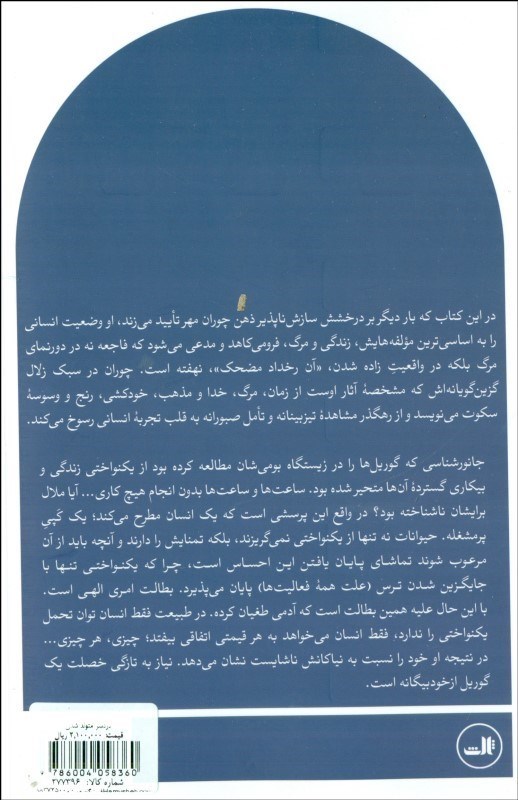 در این کتاب که بار دیگر بر درخشش سازش‌ناپذیر ذهن چوران مهر تأیید می‌زند، او وضعیت انسانی
را به اساسی‌ترین مؤلفه‌هایش، زندگی و مرگ، فرومی‌کاهد و مدعی می‌شود که فاجعه نه در دورنمای
مرگ بلکه در واقعیتِ زاده شدن، «آن رخداد مضحک»، نهفته است. چوران در سبک زلال
گزین‌گویانه‌اش که مشخصهٔ آثار اوست از زمان، مرگ، خدا و مذهب، خودکشی، رنج و وسوسهٔ
سکوت می‌نویسد و از رهگذر مشاهدهٔ تیزبینانه و تأمل صبورانه به قلب تجربهٔ انسانی رسوخ می‌کند.
جانورشناسی که گوریل‌ها را در زیستگاه بومی‌شان مطالعه کرده بود از یکنواختی زندگی و
بیکاری گستردهٔ آن‌ها متحیر شده بود. ساعت‌ها و ساعت‌ها بدون انجام هیچ کاری... آیا ملال
برایشان ناشناخته بود؟ در واقع این پرسشی است که یک انسان مطرح می‌کند؛ یک کَپیِ
پرمشغله. حیوانات نه تنها از یکنواختی نمی‌گریزند، بلکه تمنایش را دارند و آنچه باید از آن
مرعوب شوند تماشای پایان یافتن این احساس است، چرا که یکنواختی تنها با
جایگزین شدن ترس (علت همهٔ فعالیت‌ها) پایان می‌پذیرد. بطالت امری الهی است.
با این حال علیه همین بطالت است که آدمی طغیان کرده. در طبیعت فقط انسان توان تحمل
یکنواختی را ندارد، فقط انسان می‌خواهد به هر قیمتی اتفاقی بیفتد؛ چیزی، هر چیزی...
در نتیجه او خود را نسبت به نیاکانش ناشایست نشان می‌دهد. نیاز به تازگی خصلت یک
گوریل ازخودبیگانه است.
دردسر متولد شدن
قیمت: ۲,۱۰۰,۰۰۰ ریال
9786004058360
شماره کالا: ۲۷۷۳۹۶
ثالث